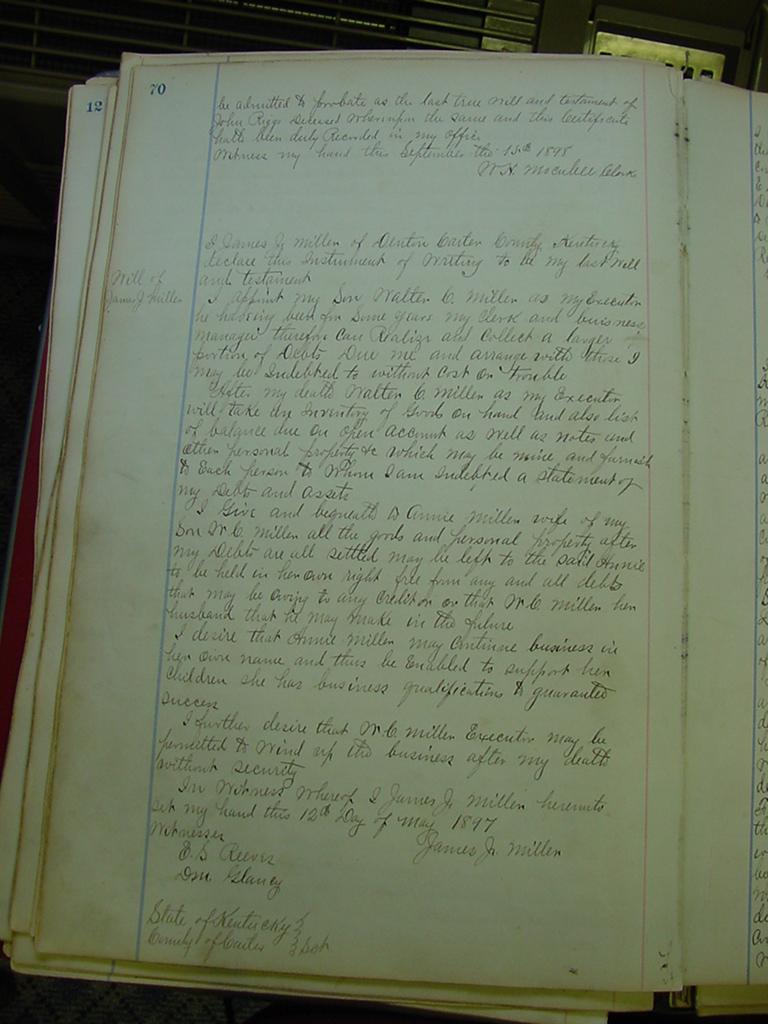 12
70
be admitted to probate as the last true will and testament of
John Riggs deceased whereupon the same and this Certificate
hath been duly Recorded in my office
Witness my hand this September the 15th 1898
W.H. Clerk
Will of
James J. Miller
I James J. Miller of Denton Carter County Kentucky
declare this Instrument of Writing to be my last Will
and testament
I appoint my Son Walter C. Miller as my Executor
he having been for Some years my Clerk and buisness
manager therefore Can Realize and Collect a larger
portion of Debts Due me and arrange with those I
may be Indebted to without Cost or trouble
After my death Walter C. Miller as my Executor
will take an Inventory of Goods on hand and also list
of balance due on open account as well as notes and
other personal property &c which may be mine and furnish
to Each person to Whom I am Indebted a statement of
my Debts and assets
I Give and bequeath to Annie Miller wife of my
Son W.C. Miller all the goods and personal property after
my Debts are all settled may be left to the said Annie
to be held in her own right free from any and all debts
that may be owing to any Creditor or that W.C. Miller her
husband that he may make in the future
I desire that Annie Miller may Continue business in
her own name and thus be Enabled to support her
Children she has business qualifications to guarantee
success
I further desire that W.C. Miller Executor may be
permitted to wind up the business after my death
without security
In Witness whereof I James J. Miller hereunto
set my hand this 12th Day of May 1897
Witnesses
James J. Miller
E.S. Reeves
D.M. Glancy
State of Kentucky }
County of Carter } Sct